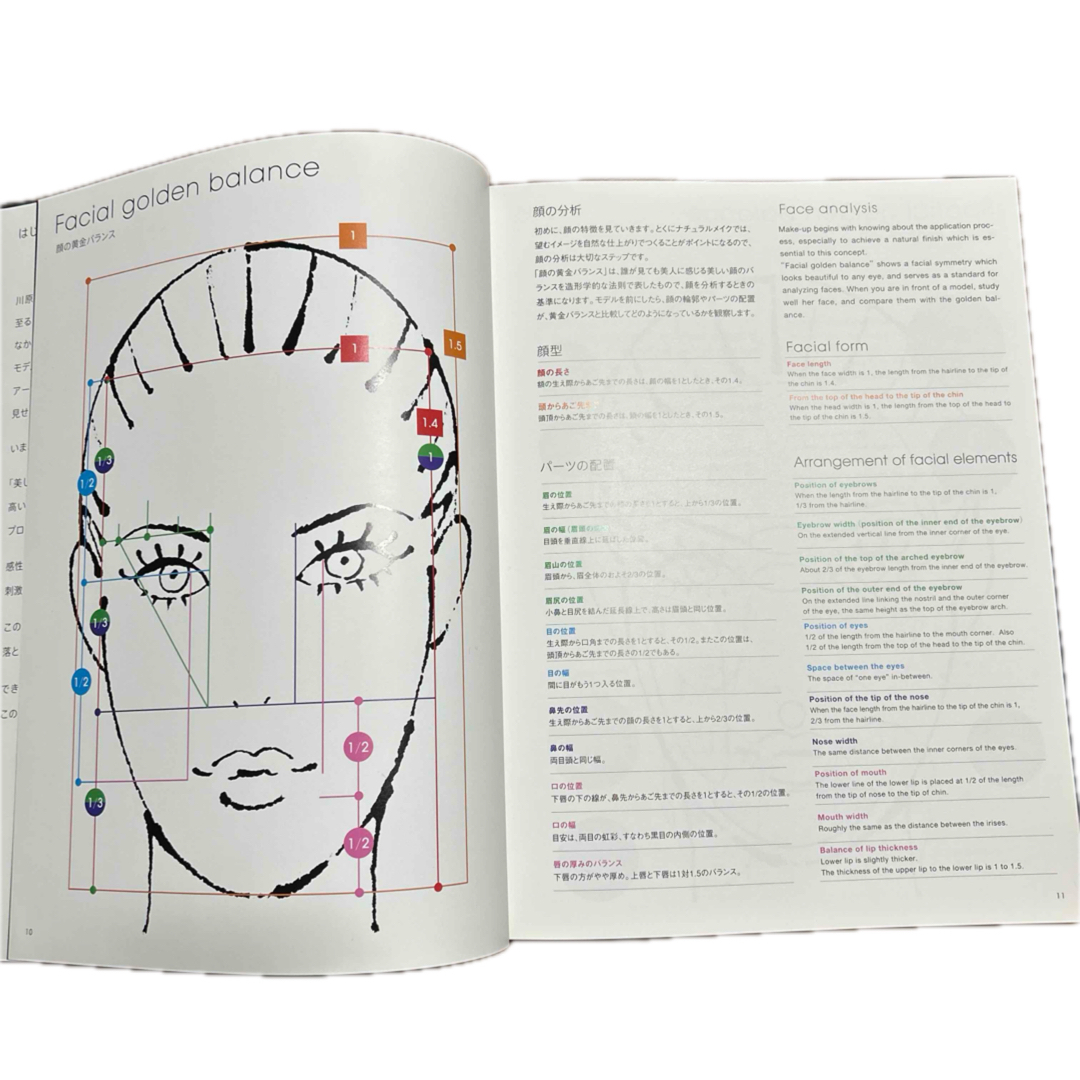 Facial golden balance
顔の黄金バランス
はじ
川原
至る
なか
モデ
アー
見せ
いま
「美し
高い
プロ
感性
刺激
この
落と
でき
この
1
1
1.5
1.4
1/3
1
1/2
1/3
1/2
1/2
1/3
1/2
10
顔の分析
初めに、顔の特徴を見ていきます。とくにナチュラルメイクでは、
望むイメージを自然な仕上がりでつくることがポイントになるので、
顔の分析は大切なステップです。
「顔の黄金バランス」は、誰が見ても美人に感じる美しい顔のバ
ランスを造形学的な法則で表したもので、顔を分析するときの
基準になります。モデルを前にしたら、顔の輪郭やパーツの配置
が、黄金バランスと比較してどのようになっているかを観察します。
顔型
顔の長さ
額の生え際からあご先までの長さは、顔の幅を1としたとき、その1.4。
頭からあご先
頭頂からあご先までの長さは、頭の幅を1としたとき、その1.5。
パーツの配置
眉の位置
生え際からあご先までの長さを1とすると、上から1/3の位置。
眉の幅(眉頭の
目頭を垂直線上に延ばした位置。
眉山の位置
眉頭から、眉全体のおよそ2/3の位置。
眉尻の位置
小鼻と目尻を結んだ延長線上で、高さは眉頭と同じ位置。
目の位置
生え際から口角までの長さを1とすると、その1/2。またこの位置は、
頭頂からあご先までの長さの1/2でもある。
目の幅
間に目がもう1つ入る位置。
鼻先の位置
生え際からあご先までの顔の長さを1とすると、上から2/3の位置。
鼻の幅
両目頭と同じ幅。
口の位置
下唇の下の線が、鼻先からあご先までの長さを1とすると、その1/2の位置。
口の幅
目安は、両目の虹彩、すなわち黒目の内側の位置。
唇の厚みのバランス
下唇の方がやや厚め。上唇と下唇は1対1.5のバランス。
Face analysis
Make-up begins with knowing about the application proc-
ess, especially to achieve a natural finish which is es-
sential to this concept.
"Facial golden balance" shows a facial symmetry which
looks beautiful to any eye, and serves as a standard for
analyzing faces. When you are in front of a model, study
well her face, and compare them with the golden bal-
ance.
Facial form
Face length
When the face width is 1, the length from the hairline to the tip of
the chin is 1.4.
From the top of the head to the tip of the chin
When the head width is 1, the length from the top of the head to
the tip of the chin is 1.5.
Arrangement of facial elements
Position of eyebrows
When the length from the hairline to the tip of the chin is 1,
1/3 from the hairline.
Eyebrow width (position of the inner end of the eyebrow)
On the extended vertical line from the inner corner of the eye.
Position of the top of the arched eyebrow
About 2/3 of the eyebrow length from the inner end of the eyebrow.
Position of the outer end of the eyebrow
On the extended line linking the nostril and the outer corner
of the eye, the same height as the top of the eyebrow arch.
Position of eyes
1/2 of the length from the hairline to the mouth corner. Also
1/2 of the length from the top of the head to the tip of the chin.
Space between the eyes
The space of "one eye" in-between.
Position of the tip of the nose
When the face length from the hairline to the tip of the chin is 1,
2/3 from the hairline.
Nose width
The same distance between the inner corners of the eyes.
Position of mouth
The lower line of the lower lip is placed at 1/2 of the length
from the tip of nose to the tip of chin.
Mouth width
Roughly the same as the distance between the irises.
Balance of lip thickness
Lower lip is slightly thicker.
The thickness of the upper lip to the lower lip is 1 to 1.5.
11